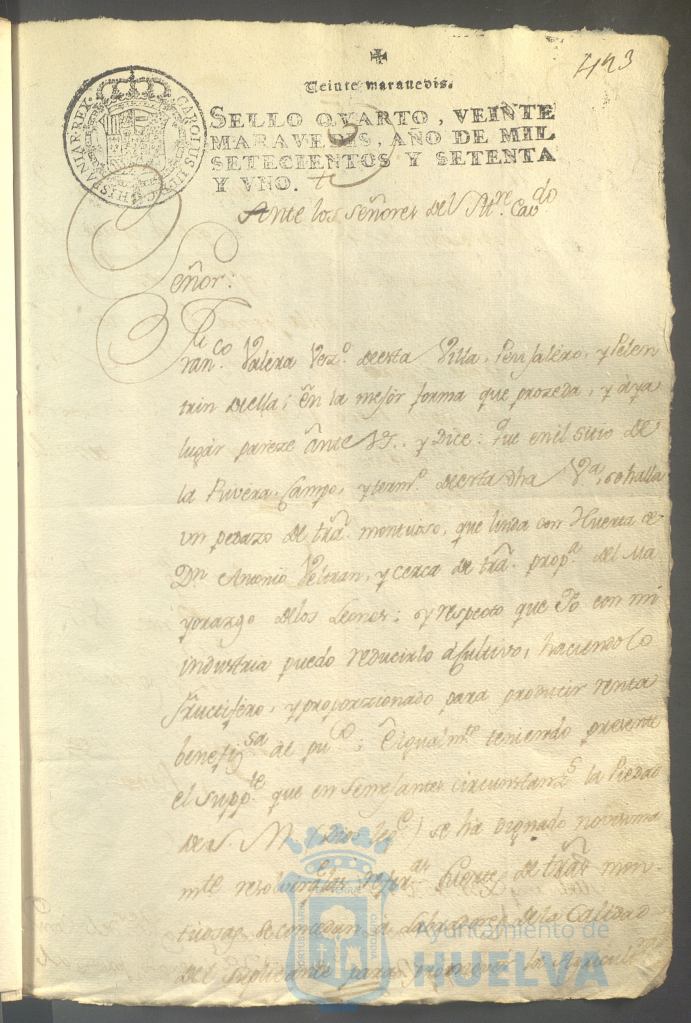 423
Veinte maravedis.
SELLO QVARTO, VEINTE
MARAVEDIS, AÑO DE MIL
SETECIENTOS Y SETENTA
Y VNO.
HISPANIAR REX CAROLUS III D G
Ante los Señores del Ill.re Cav.do
Señor:
Fran.co Valera Vez.o de esta Villa, Pensaléro, y Pelen
trin de ella; en la mejor forma que prozeda, y aya
lugar pareze ante VS. y Dice: Que en el sitio de
la Rivera, Campo, y term.o de esta dha V.a, se halla
un pedazo de trã. montuoso, que linda con Huerta de
Dn. Antonio Beltran, y cerca de trã. prop.a del Ma
yorazgo de los Leones; y respecto que Yo con mi
industria puedo reducirlo á Cultivo, haciendolo
fructifero, y proporzionado para producir renta
benefiz.sa al pu.co; E igualm.te teniendo presente
el supp.te que en semejantes circunstanz.s la Piedad
de S. M. (Dios le g.e) se ha dignado novisima
mte resolver, las suertes de trãs mon
tuosas, se concedan á Labradores de la Calidad
del suplicante para promover la Agricult.ra
Ayuntamiento de
HUELVA